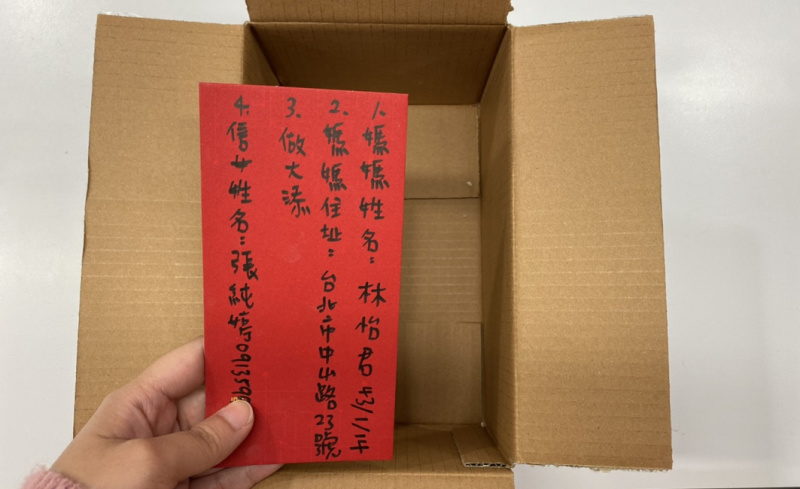 1.媽媽姓名：林怡君
2.媽媽住址：台北市中山路23號
3.做大添
4.信女姓名：張純婷091359